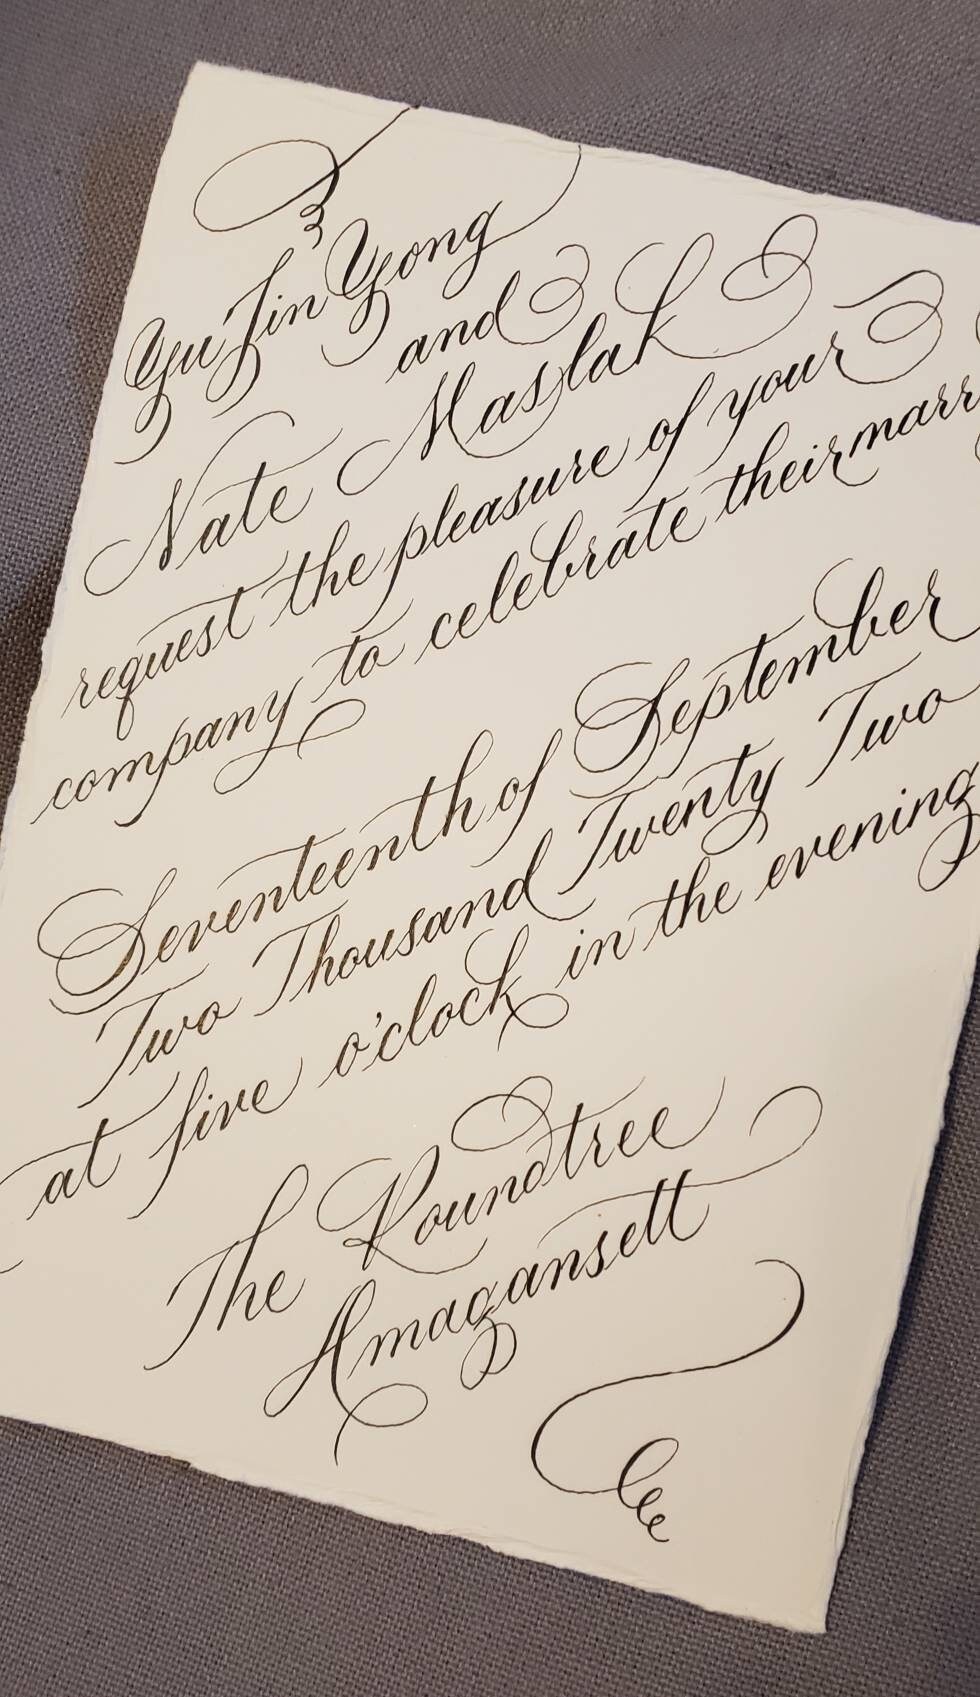 Yu Jin Yong
and
Nate Maslak
request the pleasure of your
company to celebrate their marr
Seventeenth of September
Two Thousand Twenty Two
at five o'clock in the evening
The Roundtree
Amagansett